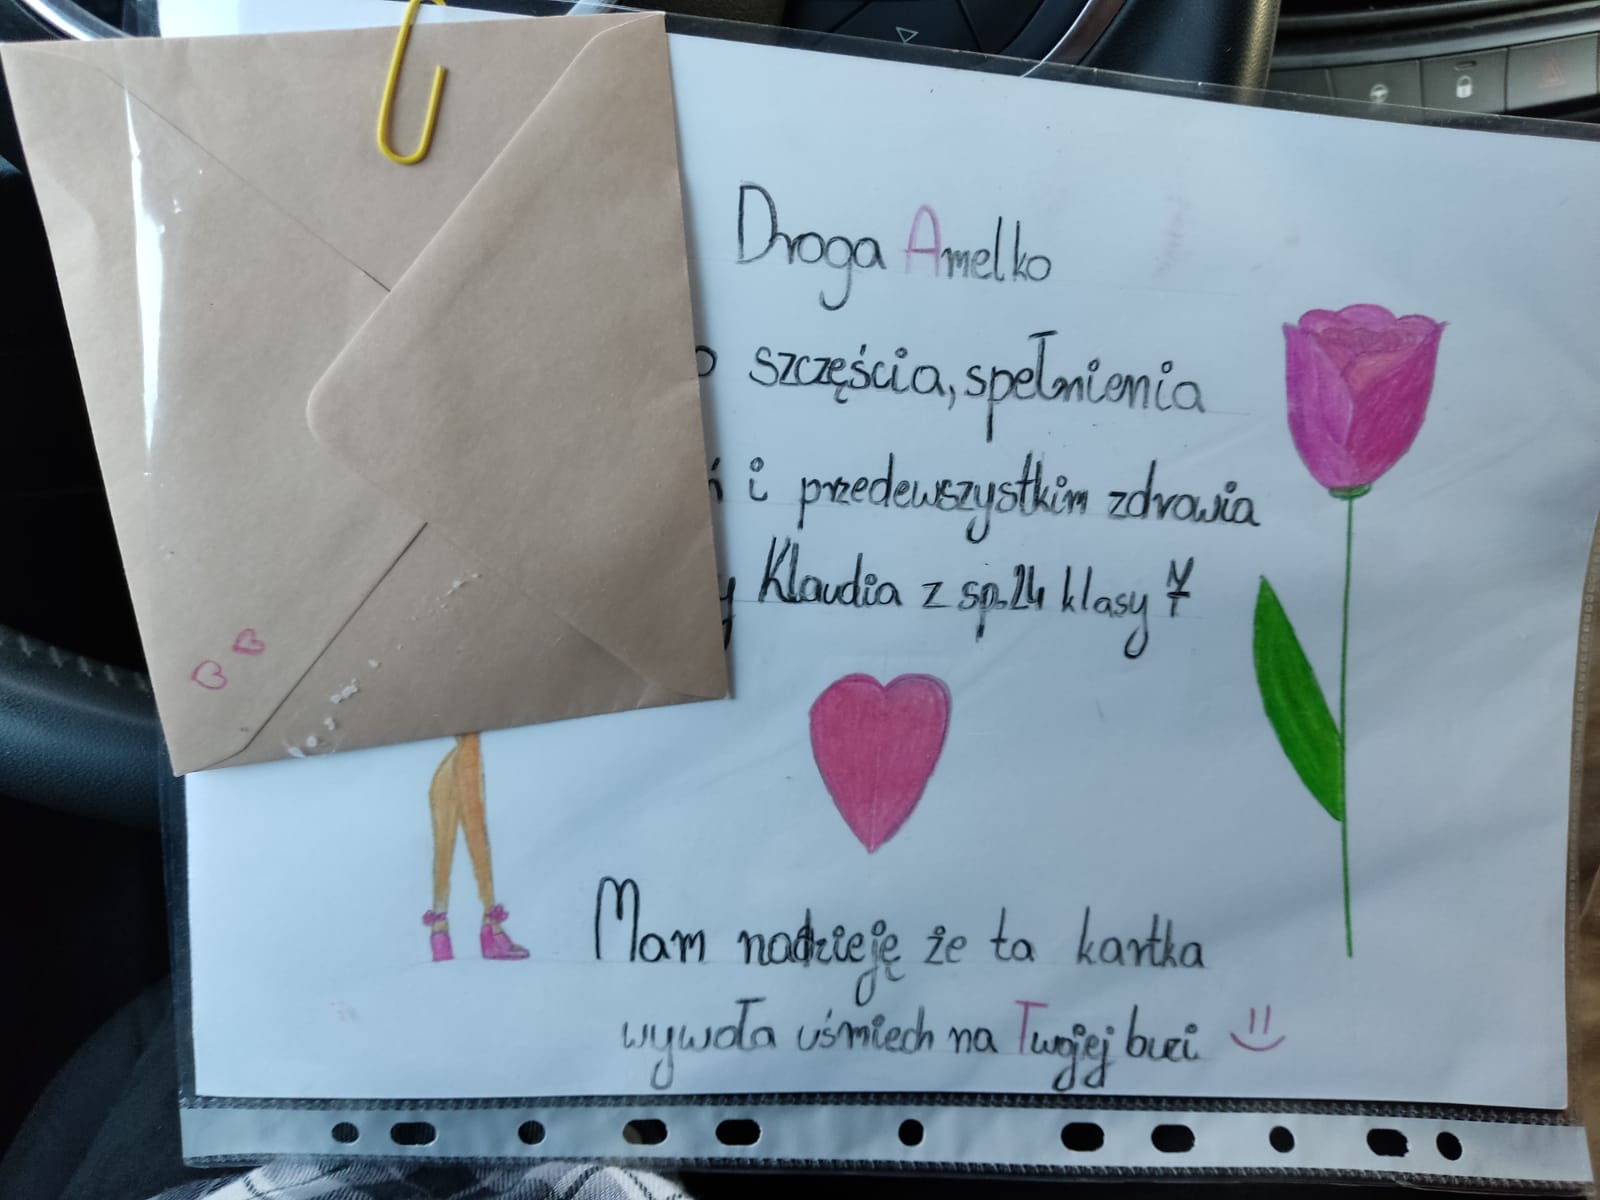 Droga Amelko
szczęścia, spełnienia
i przedewszystkim zdrowia
Klaudia z sp.24 klasy
Mam nadzieję że ta kartka
wywoła uśmiech na Twojej buzi